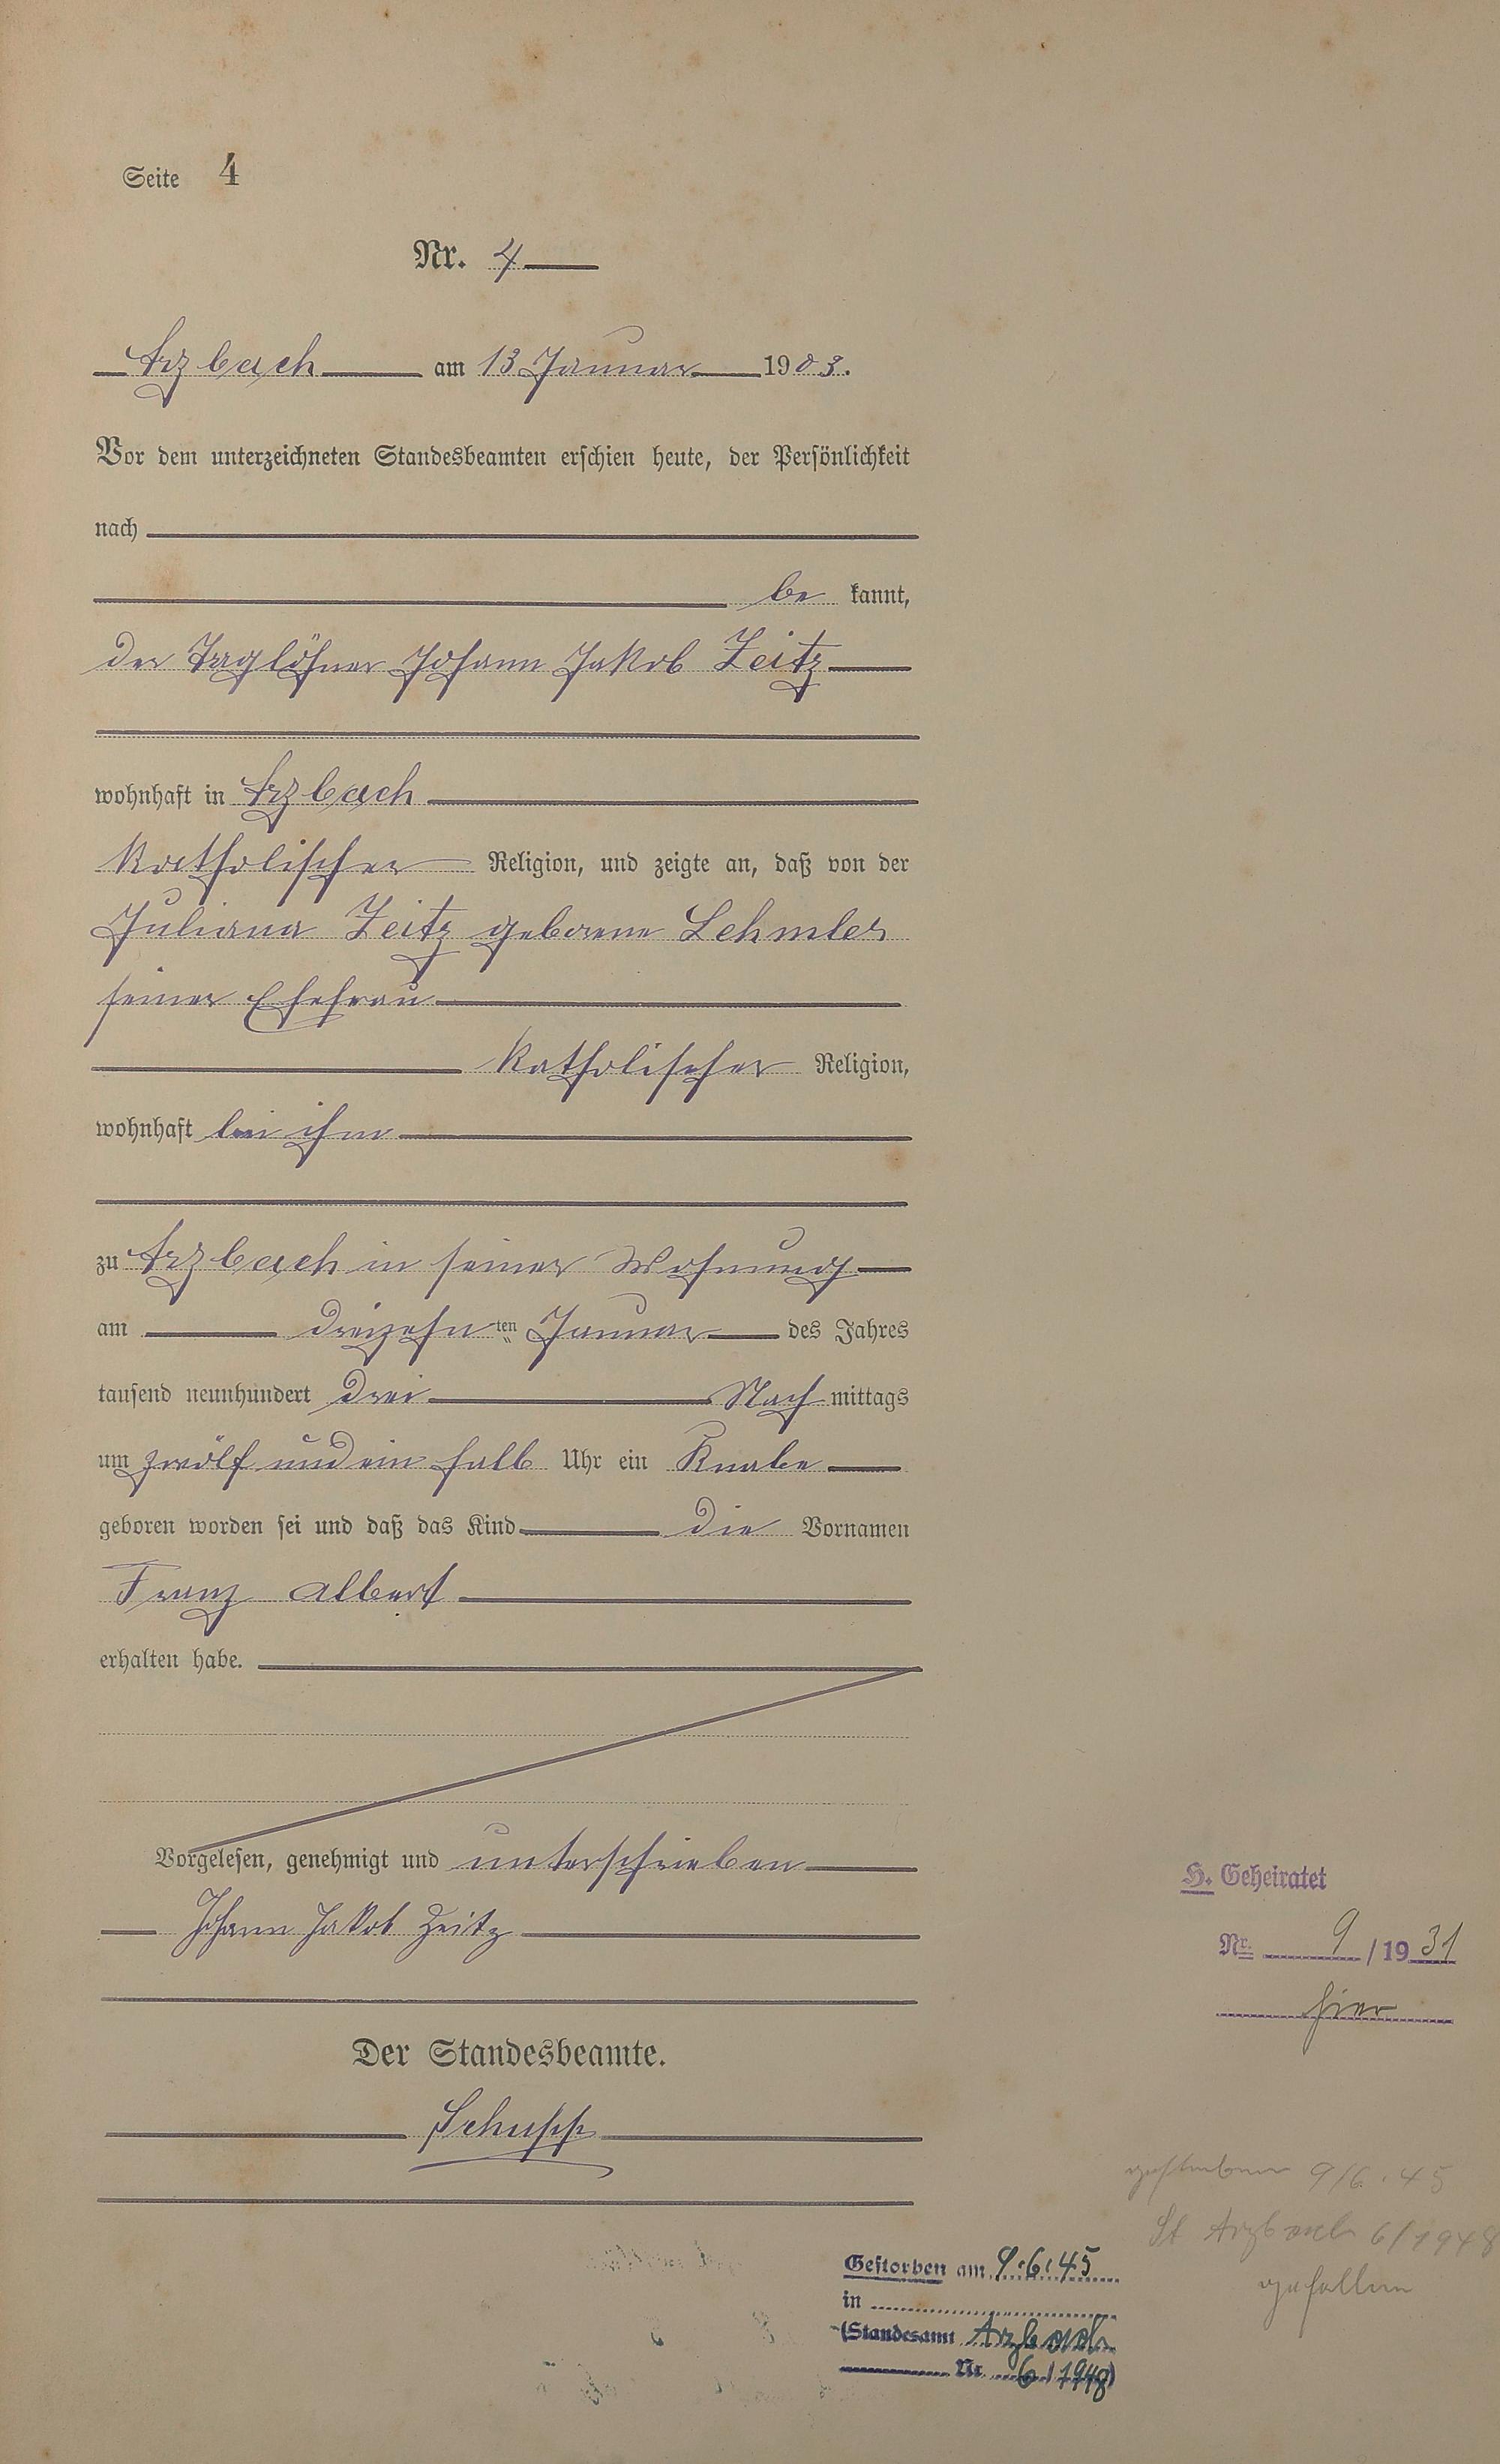 Seite 4
Nr. 4
Arzbach am 13 Januar 1903.
Vor dem unterzeichneten Standesbeamten erschien heute, der Persönlichkeit
nach
be kannt,
der Taglöhner Johann Jakob Zeitz
wohnhaft in Arzbach
katholischer Religion, und zeigte an, daß von der
Juliana Zeitz geborene Lehmler
seiner Ehefrau
katholischer Religion,
wohnhaft bei ihm
zu Arzbach in seiner Wohnung
am dreizehn ten Januar des Jahres
tausend neunhundert drei Nach mittags
um zwölf und ein halb Uhr ein Knabe
geboren worden sei und daß das Kind die Vornamen
Franz Albert
erhalten habe.
Vorgelesen, genehmigt und unterschrieben
Johann Jakob Zeitz
Der Standesbeamte.
Schupp
H. Geheiratet
Nr. 9 / 19 31
hier
gestorben 9/6.45
St Arzbach 6/1948
gefallen
Gestorben am 9.6.45
in
(Standesamt Arzbach
Nr. 6/1948)